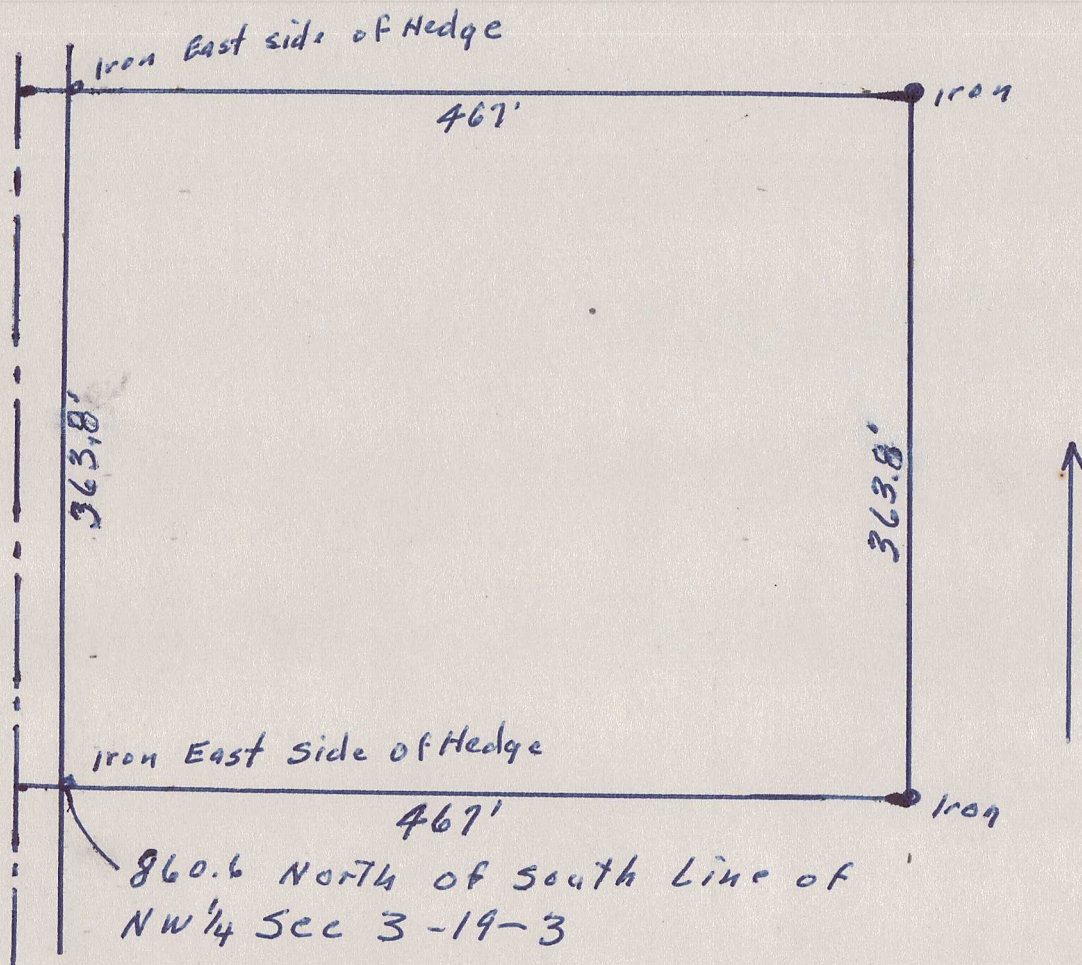 Iron East side of Hedge
467'
Iron
363.8'
363.8'
Iron East Side of Hedge
467'
Iron
860.6 North of South Line of
NW 1/4 Sec 3-19-3